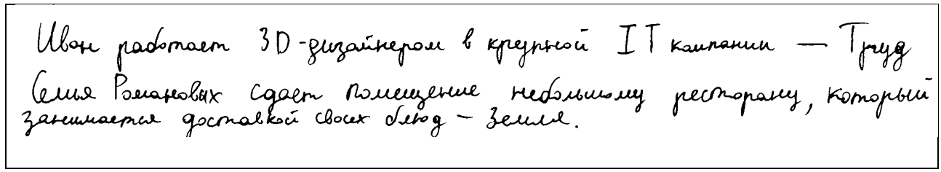 Иван работает 3D-дизайнером в крупной IT компании — Труд
Семья Романовых сдает помещение небольшому ресторану, который
занимается доставкой своих блюд — Земля.